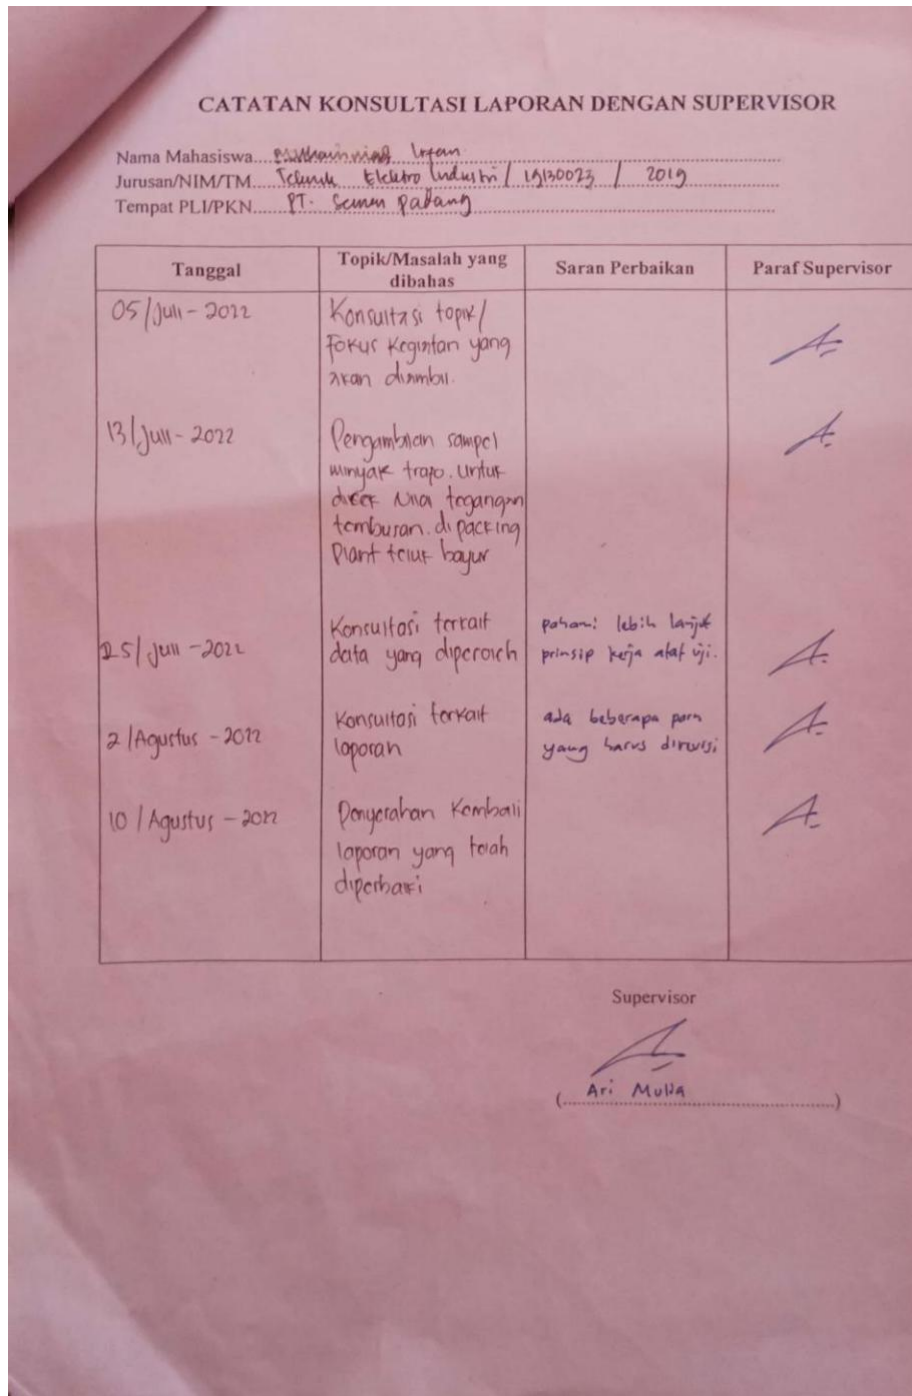 CATATAN KONSULTASI LAPORAN DENGAN SUPERVISOR
Nama Mahasiswa.... Muhammad Irfan
Jurusan/NIM/TM.... Teknik Elektro Industri / 19130023 / 2019
Tempat PLI/PKN.... PT. Semen padang
Tanggal
Topik/Masalah yang
dibahas
Saran Perbaikan
Paraf Supervisor
05/Juli - 2022
Konsultasi topik/
Fokus Kegiatan yang
akan diambil.
13/Juli - 2022
Pengambilan sampel
minyak trapo. untuk
dicek Nilai tegangan
tembusan. di packing
Plant teluk bayur
25/Juli - 2022
Konsultasi terkait
data yang diperoleh
pahami lebih lanjut
prinsip kerja alat uji.
2/Agustus - 2022
Konsultasi terkait
laporan
ada beberapa
yang harus direvisi
10/Agustus - 2022
Penyerahan Kembali
laporan yang telah
diperbaiki
Supervisor
(Ari Mulia)